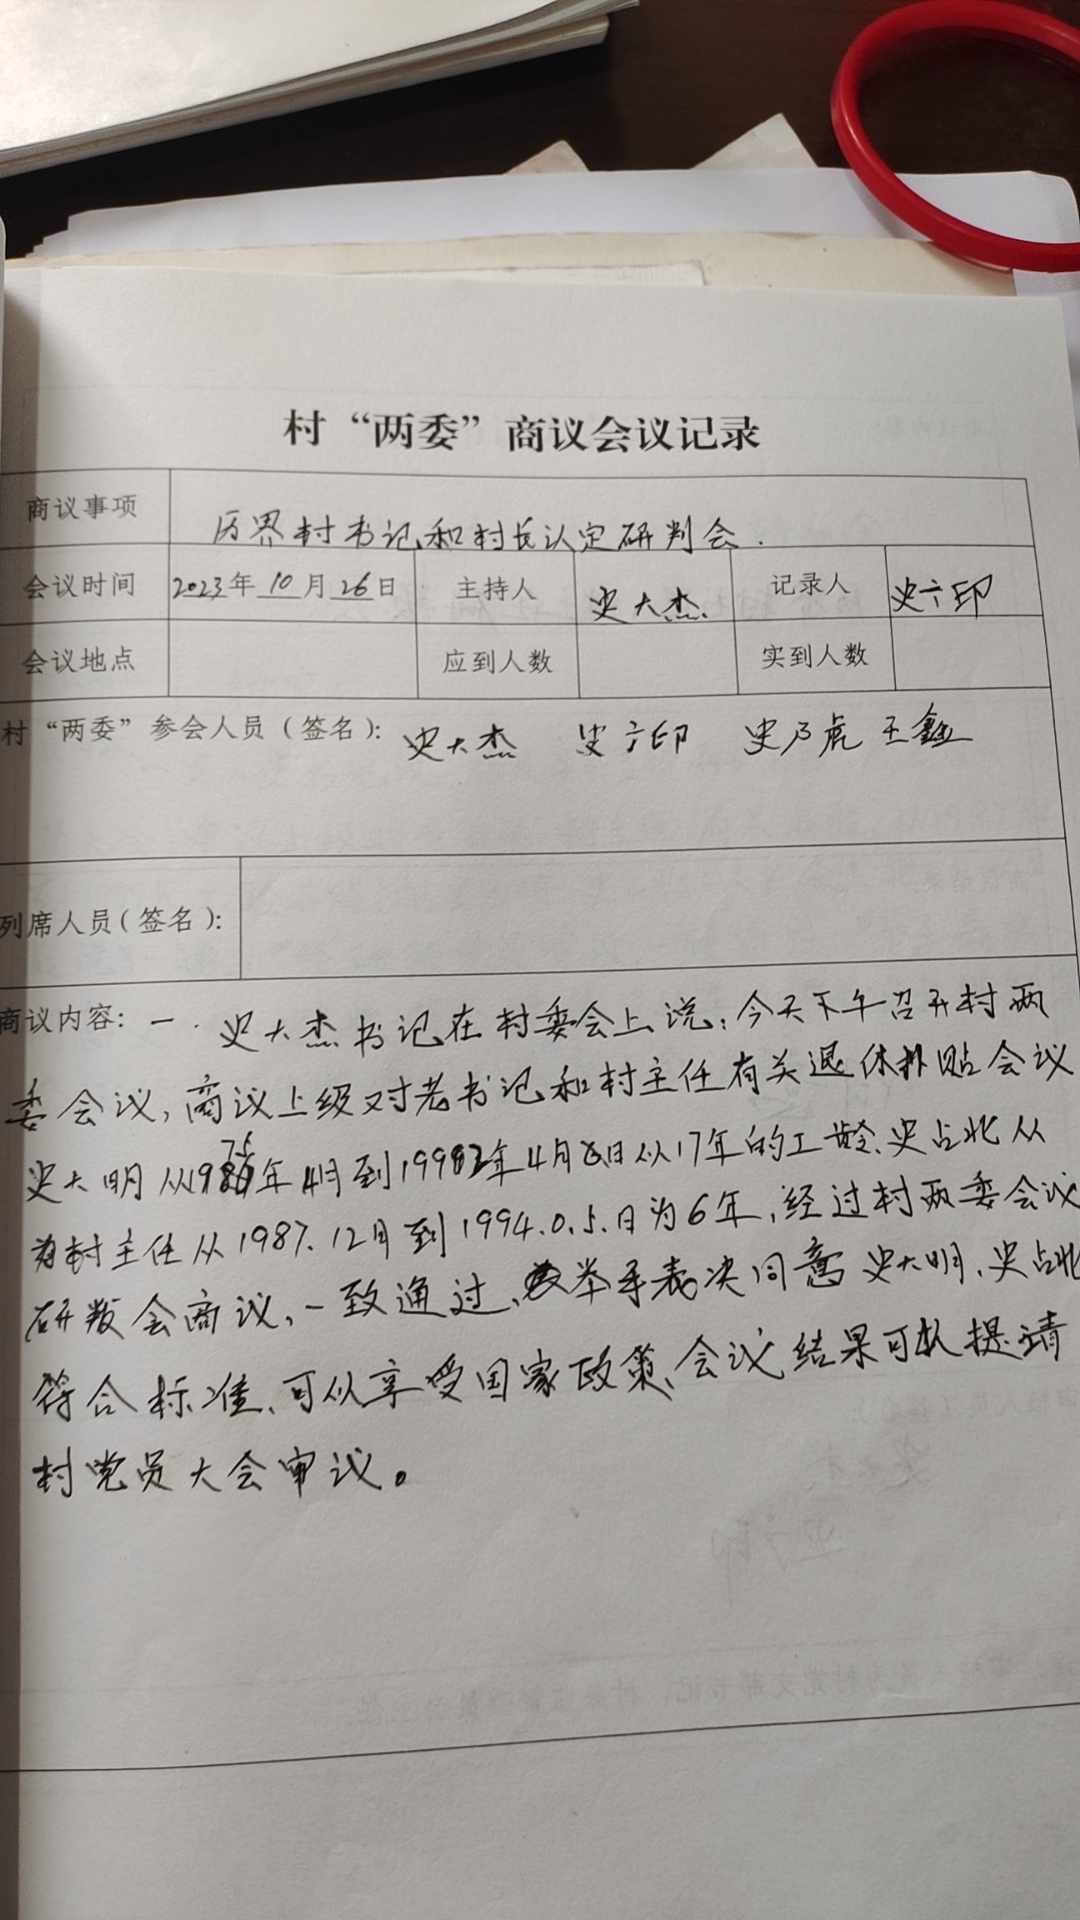 村“两委”商议会议记录
商议事项 历界村书记和村长认定研判会.
会议时间 2023年10月26日 主持人 史大杰 记录人 史六印
会议地点 应到人数 实到人数
村“两委”参会人员(签名): 史大杰 史六印 史乃虎 王鑫
列席人员(签名):
商议内容: 一. 史大杰书记在村委会上说:今天下午召开村两
委会议,商议上级对老书记和村主任有关退休补贴会议
史大明从1975年4月到1992年4月 日从17年的工龄、史占北从
为村主任从1987.12月到1994.0.5.日为6年,经过村两委会议
研叛会商议,一致通过,举手表决同意史大明、史占北
符合标准、可以享受国家政策、会议结果可以提请
村党员大会审议。